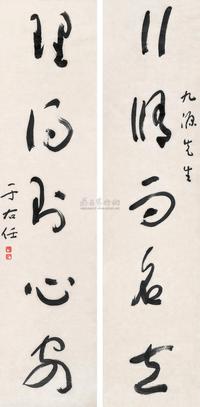 九源先生
行修而名立
理得則心安
于右任